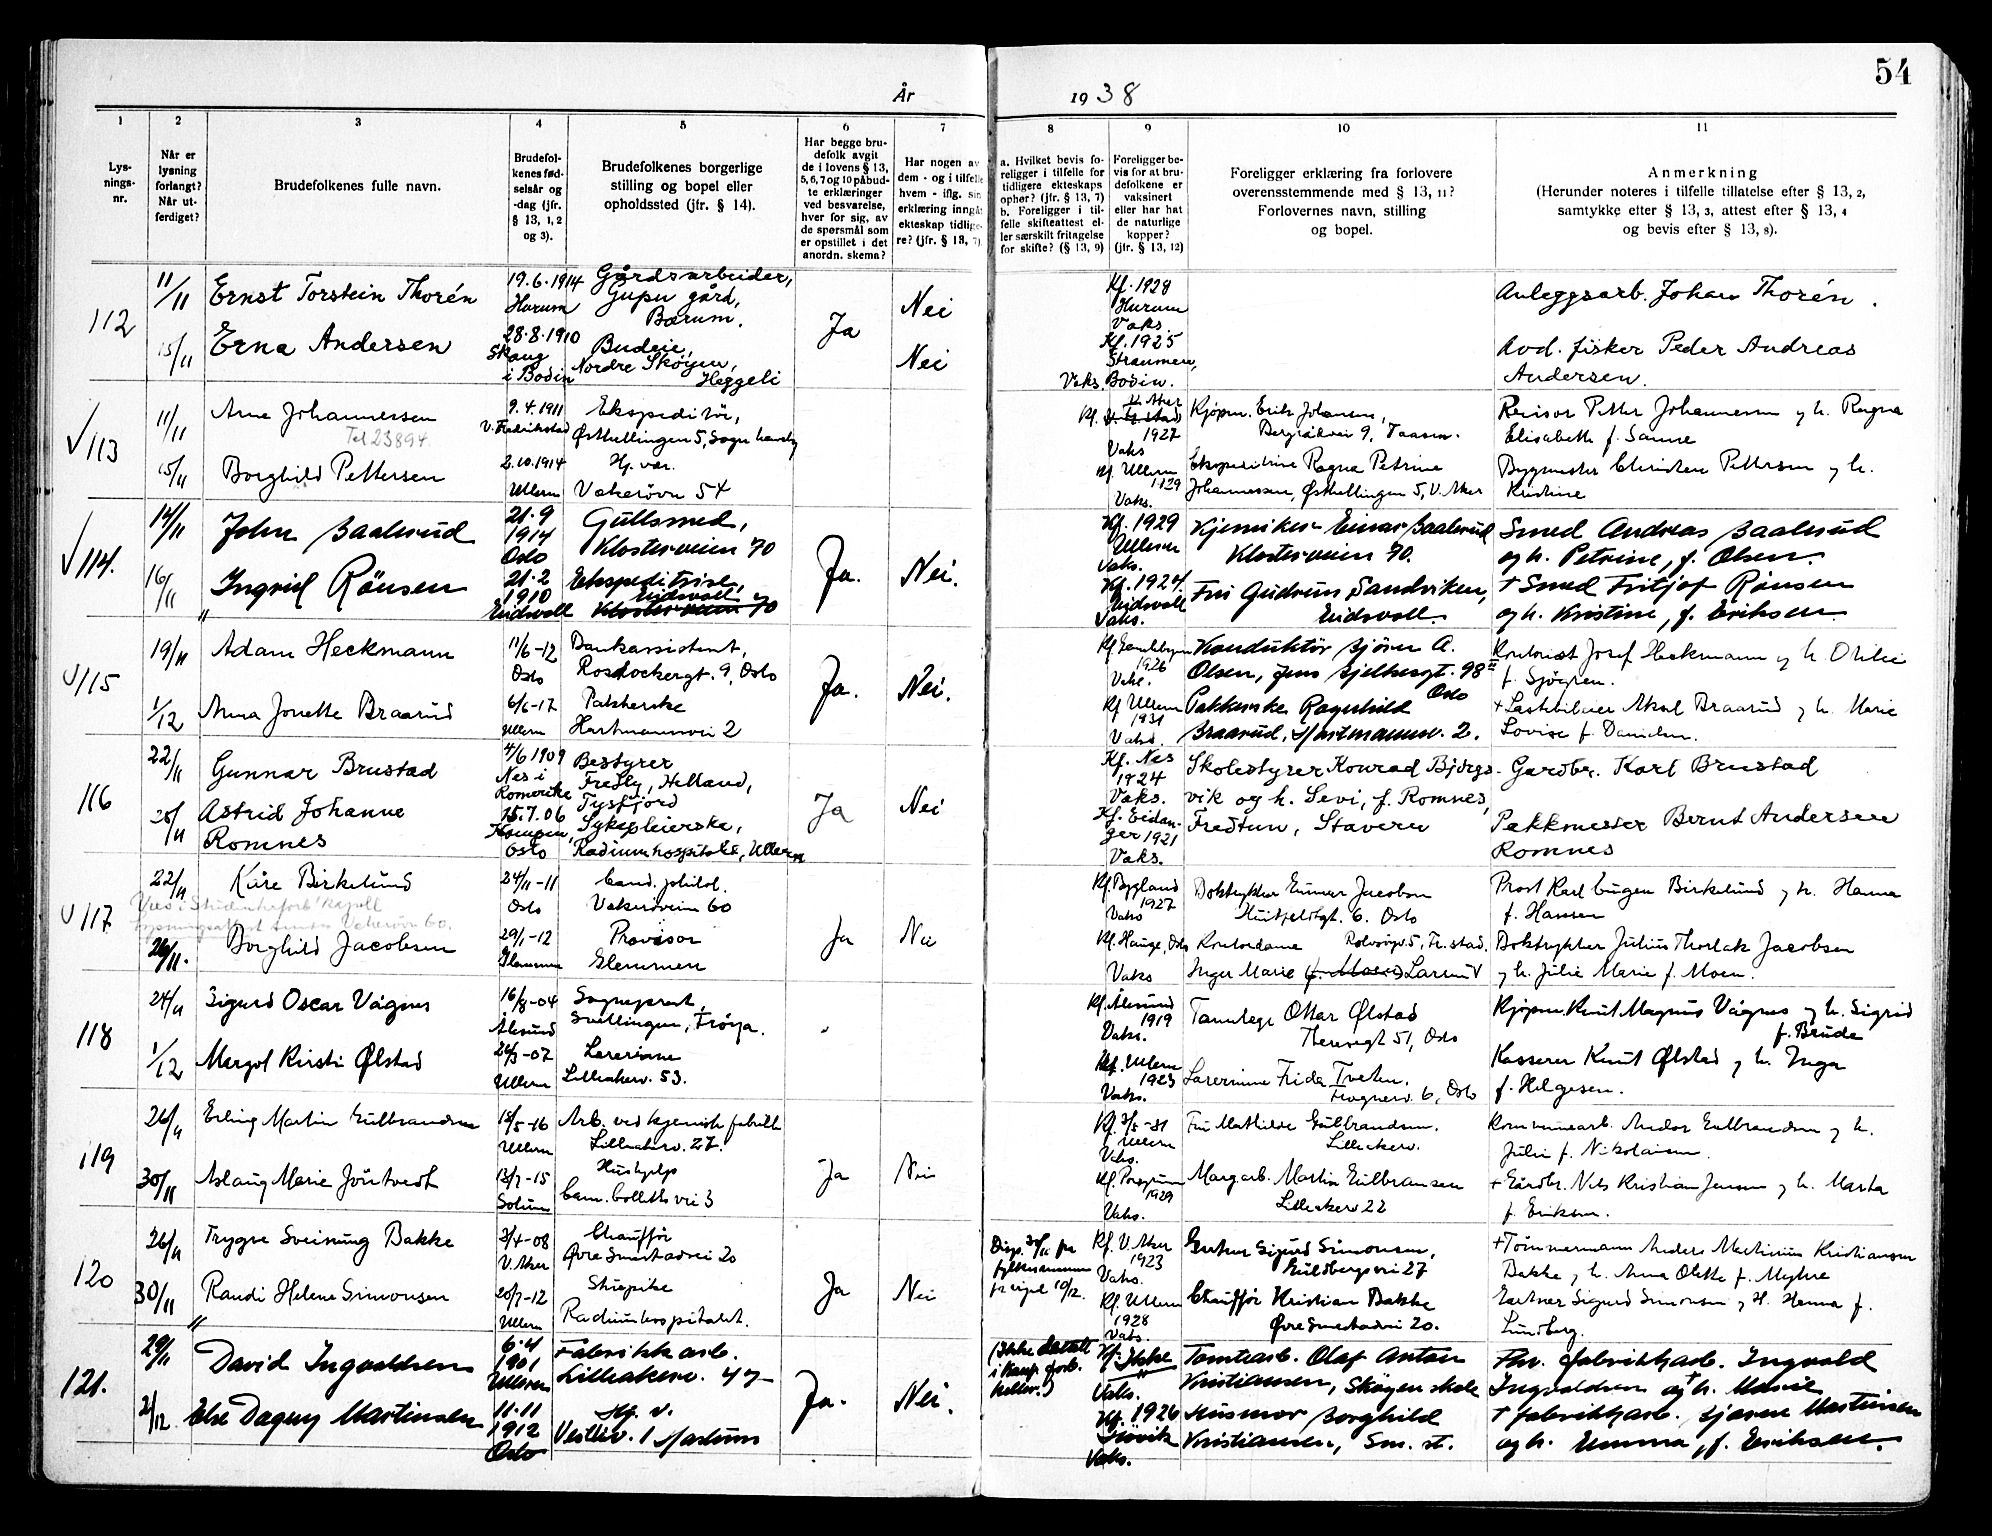 54
År 1938
1
2
3
4
5
6
7
8
9
10
11
Lys-
nings-
nr.
Når er
lysning
forlangt?
Når ut-
ferdiget?
Brudefolkenes fulle navn.
Brudefol-
kenes fød-
selsår og
-dag (jfr.
§ 13, 1, 2
og 3).
Brudefolkenes borgerlige
stilling og bopel eller
opholdssted (jfr. § 14).
Har begge bru-
defolk avgit
de i lovens § 13,
5, 6, 7 og 10 påbud-
te erklæringer
ved besvarelse,
hver for sig, av
de spørsmål som
er opstillet i det
anordn. skema?
Har nogen av
dem - og i tilfelle
hvem - iflg. sin
erklæring inngå
ekteskap tidlige-
re? (jfr. § 13, 7)
a. Hvilket bevis fo-
religger i tilfelle for
tidligere ekteskaps
ophør? (jfr. § 13, 7)
b. Foreligger i til-
felle skifteattest el-
ler særskilt fritagelse
for skifte? (§ 13, 9)
Foreligger be-
vis for at bru-
defolkene er
vaksinert
eller har hat
de naturlige
kopper?
(jfr. § 13, 12)
Foreligger erklæring fra forlovere
overensstemmende med § 13, 11?
Forlovernes navn, stilling
og bopel.
Anmerkning
(Herunder noteres i tilfelle tillatelse efter § 13, 2,
samtykke efter § 13, 3, attest efter § 13, 4
og bevis efter § 13, 8).
112
11/11
Ernst Torstein Thorén
19.6.1914
Hurum
Gårdsarbeider,
Gupu gård,
Bærum.
Ja
Nei
Kf. 1928
Hurum
Vaks.
Anleggsarb. Johan Thorén.
15/11
Erna Andersen
28.8.1910
Skaug
i Bodin
Budeie,
Nordre Skøyen,
Heggeli
Nei
Kf. 1925
Straumen,
Vaks. Bodin.
Avd. fisker Peder Andreas
Andersen.
√113
11/11
Arne Johannessen
Tel 23894.
9.4.1911
V. Fredrikstad
Ekspeditør,
Østhellingen 5, Sogn haveby
Kf.
V. Aker
1927
Vaks
Kjøpm. Erik Johansen,
Bergsalvei 9, Taasen.
Revisor Petter Johannessen og h. Ragna
Elisabeth f. Sanne
15/11
Borghild Pettersen
2.10.1914
Ullern
Hj. vær.
Vækerøvn 54
Kf. Ullern
1929
Vaks.
Ekspeditrise Ragna Petrine
Johannessen, Østhellingen 5, V. Aker
Bygmester Christen Pettersen og h.
Kristine
√114.
14/11
John Baalsrud
21.9
1914
Oslo
Gullsmed,
Klosterveien 70
Ja.
Nei.
Kf. 1929
Ullern
Vaks.
Kjemiker Einar Baalsrud
Klosterveien 70.
Smed Andreas Baalsrud
og h. Petrine, f. Olsen.
16/11
Ingrid Rönsen
21.2
1910
Eidsvoll
Ekspeditrise,
Eidsvoll
Klosterveien 70
Kf. 1924
Eidsvoll
Vaks.
Fru Gudrun Sandviken,
Eidsvoll.
+ Smed Fritjof Rönsen
og h. Kristine, f. Eriksen.
√115
19/11
Adam Heckmann
11/6-12
Oslo
Bankassistent,
Rosdockergt. 9, Oslo
Ja.
Nei.
Kf. Gamlebyen
1926
Vaks.
Konduktør Bjørn A.
Olsen, Jens Bjelkesgt. 98 II
Oslo
Kontorist Josef Heckmann og h. Otilie
f. Sjögren.
1/12
Anna Jonette Braarud
6/6-17
Ullern
Pakkerske
Hartmannsvei 2
Kf. Ullern
1931
Vaks.
Pakkerske Ragnhild
Braarud, Hartmannsv. 2.
+ Lastebileier Aksel Braarud og h. Marie
Lovise f. Danielsen.
116
22/11
Gunnar Brustad
4/6 1909
Nes i
Romerike
Bestyrer
Fredly, Helland,
Tysfjord
Ja
Nei
Kf. Nes
1924
Vaks.
Skolestyrer Konrad Bjørgs-
vik og h. Sevi, f. Romnes,
Fredtun, Stavern
Gardbr. Karl Brustad
25/11
Astrid Johanne
Romnes
15.7.06
Kampen,
Oslo
Sykepleierske,
Radiumhospitalet, Ullern
Kf. Eidan-
ger 1921
Vaks.
Pakkmester Bernt Andersen
Romnes
√117
22/11
Kåre Birkelund
24/11-11
Oslo
Cand. philol.
Vækerøveien 60
Ja
Nei
Kf. Bygland
1927
Vaks
Boktrykker Einar Jacobsen
Huitfeldtgt. 6. Oslo
Prost Karl Eugen Birkelund og h. Hanna
f. Hansen
Vies i Studenterforb' kapell
26/11.
Borghild Jacobsen
29/1-12
Glemmen
Provisor
Glemmen
Kf. Hauge, Oslo
Vaks
Kontordame Rolvsøyv. 5, Fr.stad.
Inger Marie (f. Moen) Larsen
Boktrykker Julius Thorlak Jacobsen
og h. Julie Marie f. Moen.
118
24/11
Sigurd Oscar Vågnes
16/8-04
Ålesund
Sogneprest,
Svellingen, Frøya.
Kf. Ålesund
1919
Vaks.
Tannlege Ottar Ølstad
Theresesgt 51, Oslo
Kjøpm. Knut Magnus Vågnes og h. Sigrid
f. Brude
1/12
Margot Kirsti Ølstad
24/3-07
Ullern
Lærerinne
Lilleakerv. 53.
Kf. Ullern
1923
Vaks.
Lærerinne Frida Tveten.
Frognerv. 6, Oslo
Kasserer Knut Ølstad og h. Inga
f. Helgesen.
119
26/11
Erling Martin Gulbrandsen
15/5-16
Ullern
Arb. ved kjemisk fabrikk
Lilleakerv. 27.
Ja
Nei
Kf. 3/5-31
Ullern
Vaks.
Fru Mathilde Gulbrandsen.
Lilleakerv.
Kommunearb. Andor Gulbrandsen og h.
Julie f. Nikolaisen.
30/11
Aslaug Marie Jöntvedt
13/7-15
Solum
Hushjelp
Cam. Colletts vei 3
Kf. Porsgrunn
1929
Vaks.
Margarb. Martin Gulbransen
Lilleakerv 22
+ Gårdbr. Nils Kristian Jensen og h. Marta
f. Eriksen.
120
26/11
Trygve Sveinung Bakke
3/4-08
V. Aker
Chauffør
Øvre Smestadvei 20
Ja
Nei
Disp. 30/11 fra
fylkesmannen
Kf. V. Aker
1923
Vaks.
Gartner Sigurd Simonsen,
Guldbergsvei 27
+ Tømmermann Anders Martinius Kristiansen
Bakke og h. Anna Olette f. Myhre
30/11
Randi Helene Simonsen
20/7-12
Ullern
Stuepike
Radiumhospitalet.
Kf. Ullern
1928
Vaks.
Chauffør Kristian Bakke
Øvre Smestadvei 20.
Gartner Sigurd Simonsen og H. Hanna f.
Lundberg.
121.
29/11
David Ingvaldsen
6.4
1901
Ullern
Fabrikkarb.
Lilleakerv. 47
Ja.
Nei.
(Ikke betalt
i Kamp forb.
heller.)
Kf.
Ikke
Vaks.
Tomtearb. Olaf Anton
Kristiansen, Skøyen skole
Fhv. fabrikkarb. Ingvald
Ingvaldsen og + h. Marie
2/12
Else Dagny Martinsen
11.11
1912
Oslo
Hj. v.
Vestliv. 1 Hoslum
Kf. 1926
Gjøvik
Vaks.
Husmor Borghild
Kristiansen, Sm. st.
+ fabrikkarb. Bjarne Martinsen
og h. Emma, f. Eriksen.